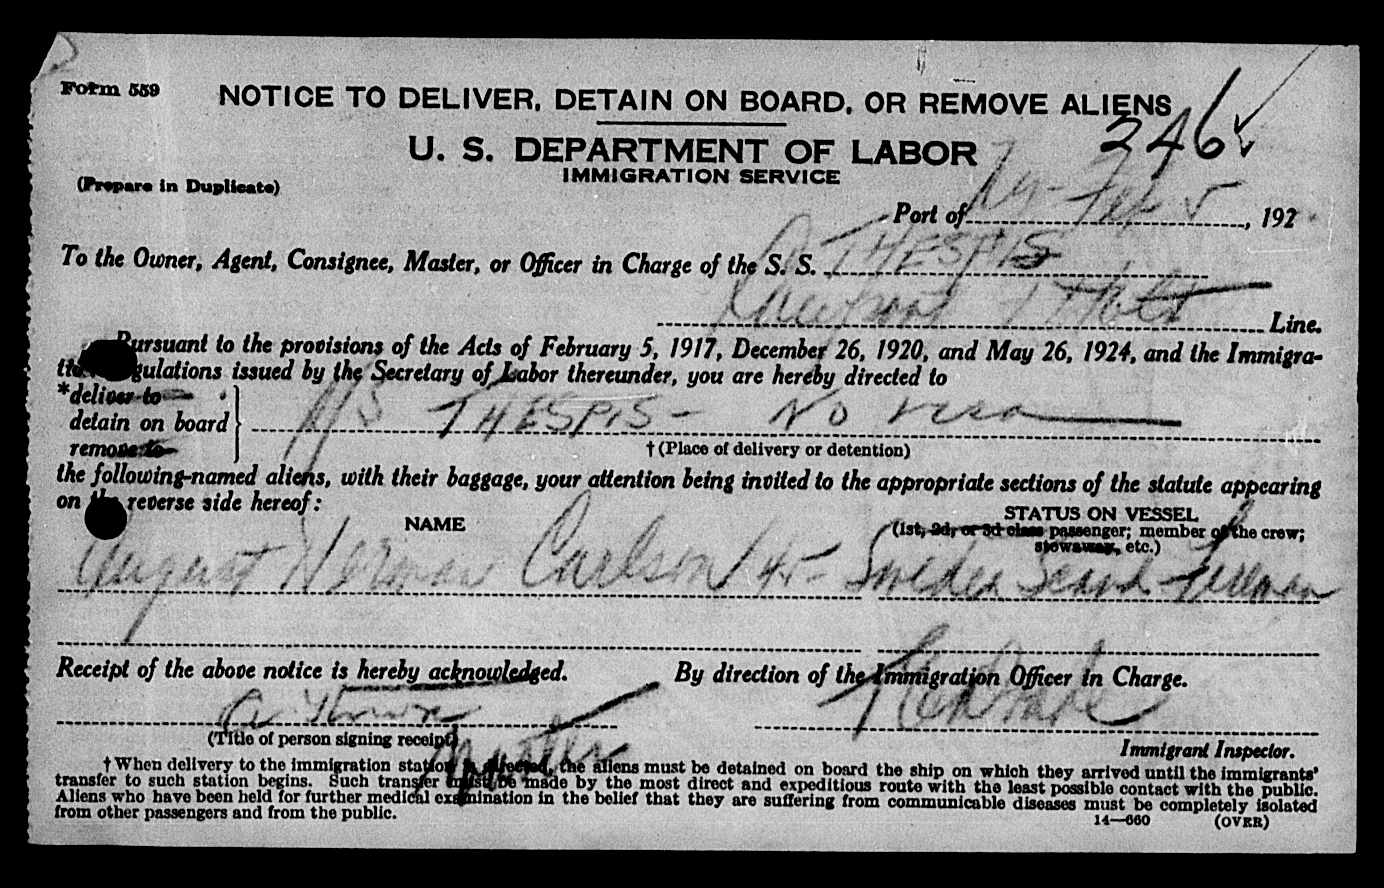 Form 559
NOTICE TO DELIVER, DETAIN ON BOARD, OR REMOVE ALIENS
246
U. S. DEPARTMENT OF LABOR
IMMIGRATION SERVICE
(Prepare in Duplicate)
Port of NY - 5, 192
To the Owner, Agent, Consignee, Master, or Officer in Charge of the S. S. THESPIS
Line.
Pursuant to the provisions of the Acts of February 5, 1917, December 26, 1920, and May 26, 1924, and the Immigra-
gulations issued by the Secretary of Labor thereunder, you are hereby directed to
*deliver to
detain on board S THESPIS - No visa
remove to
† (Place of delivery or detention)
the following-named aliens, with their baggage, your attention being invited to the appropriate sections of the statute appearing
on the reverse side hereof:
NAME
STATUS ON VESSEL
(1st, 2d, or 3d class passenger; member of the crew;
stowaway, etc.)
August Herman Carlson 45 - Sweden Scand Fireman
Receipt of the above notice is hereby acknowledged.
By direction of the Immigration Officer in Charge.
Master
(Title of person signing receipt)
Immigrant Inspector.
† When delivery to the immigration station is directed, the aliens must be detained on board the ship on which they arrived until the immigrants'
transfer to such station begins. Such transfer must be made by the most direct and expeditious route with the least possible contact with the public.
Aliens who have been held for further medical examination in the belief that they are suffering from communicable diseases must be completely isolated
from other passengers and from the public.
14—660
(OVER)